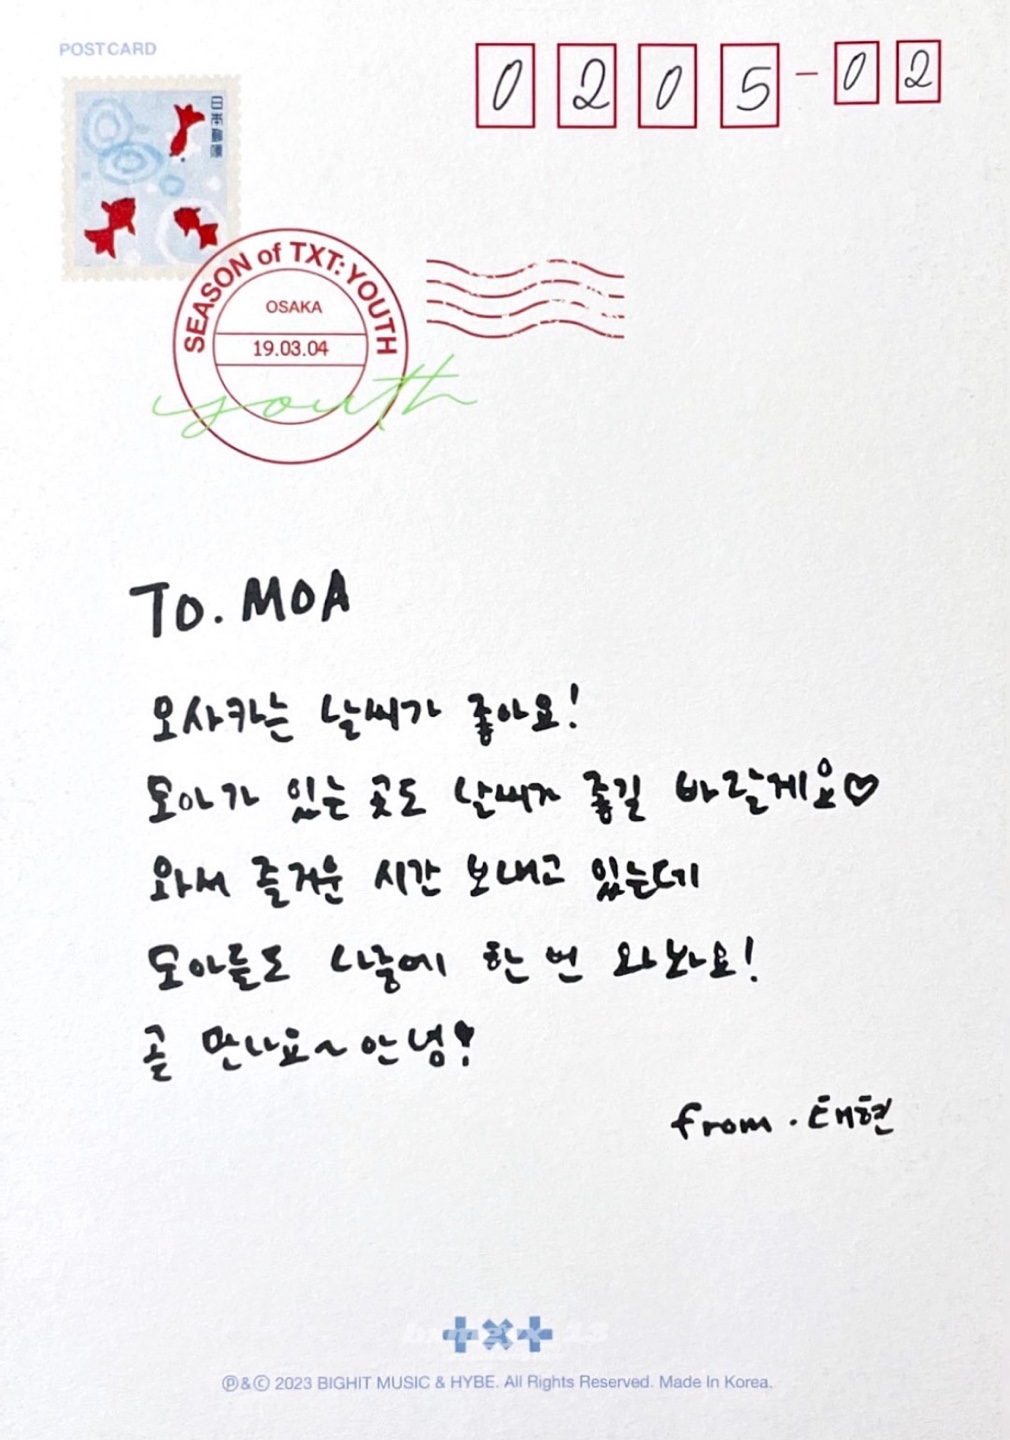 POSTCARD
0 2 0 5 - 0 2
日本郵便
SEASON of TXT: YOUTH
OSAKA
19.03.04
youth
To. MOA
오사카는 날씨가 좋아요!
모아가 있는 곳도 날씨가 좋길 바랄게요♡
와서 즐거운 시간 보내고 있는데
모아들도 나중에 한 번 와봐요!
곧 만나요~ 안녕!
from. 태현
Ⓟ&© 2023 BIGHIT MUSIC & HYBE. All Rights Reserved. Made In Korea.